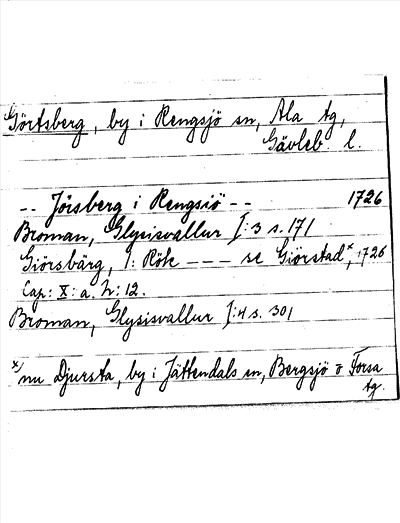 Görtsberg, by i Rengsjö sn, Ala tg,
Gävleb. l.
-- Jörsberg i Rengsiö -- 1726
Broman, Glysisvallur I:3 s. 171
Giörsbärg, 1: Rök --- se Giörstad x, 1726
Cap: X: a. h: 12.
Broman, Glysisvallur I:4 s. 301
x) nu Djursta, by i Jättendals sn, Bergsjö o Forsa
tg.